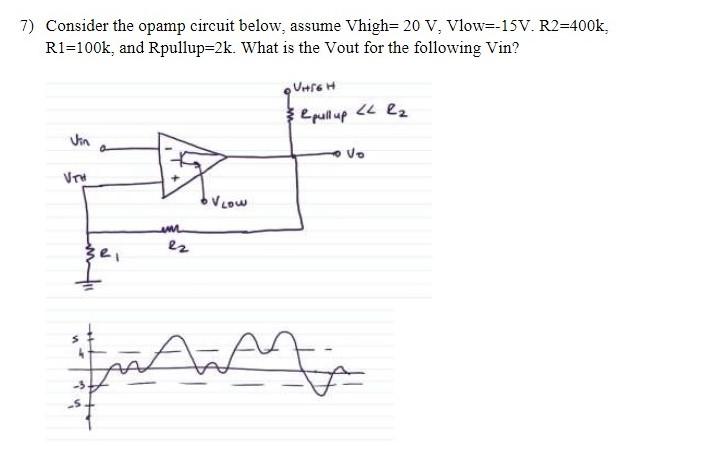 7) Consider the opamp circuit below, assume Vhigh= 20 V, Vlow=-15V. R2=400k,
R1=100k, and Rpullup=2k. What is the Vout for the following Vin?
VHIGH
Rpullup << R2
Vin
-
Vo
VTH
+
VLOW
R1
R2
5
4
-3
-5